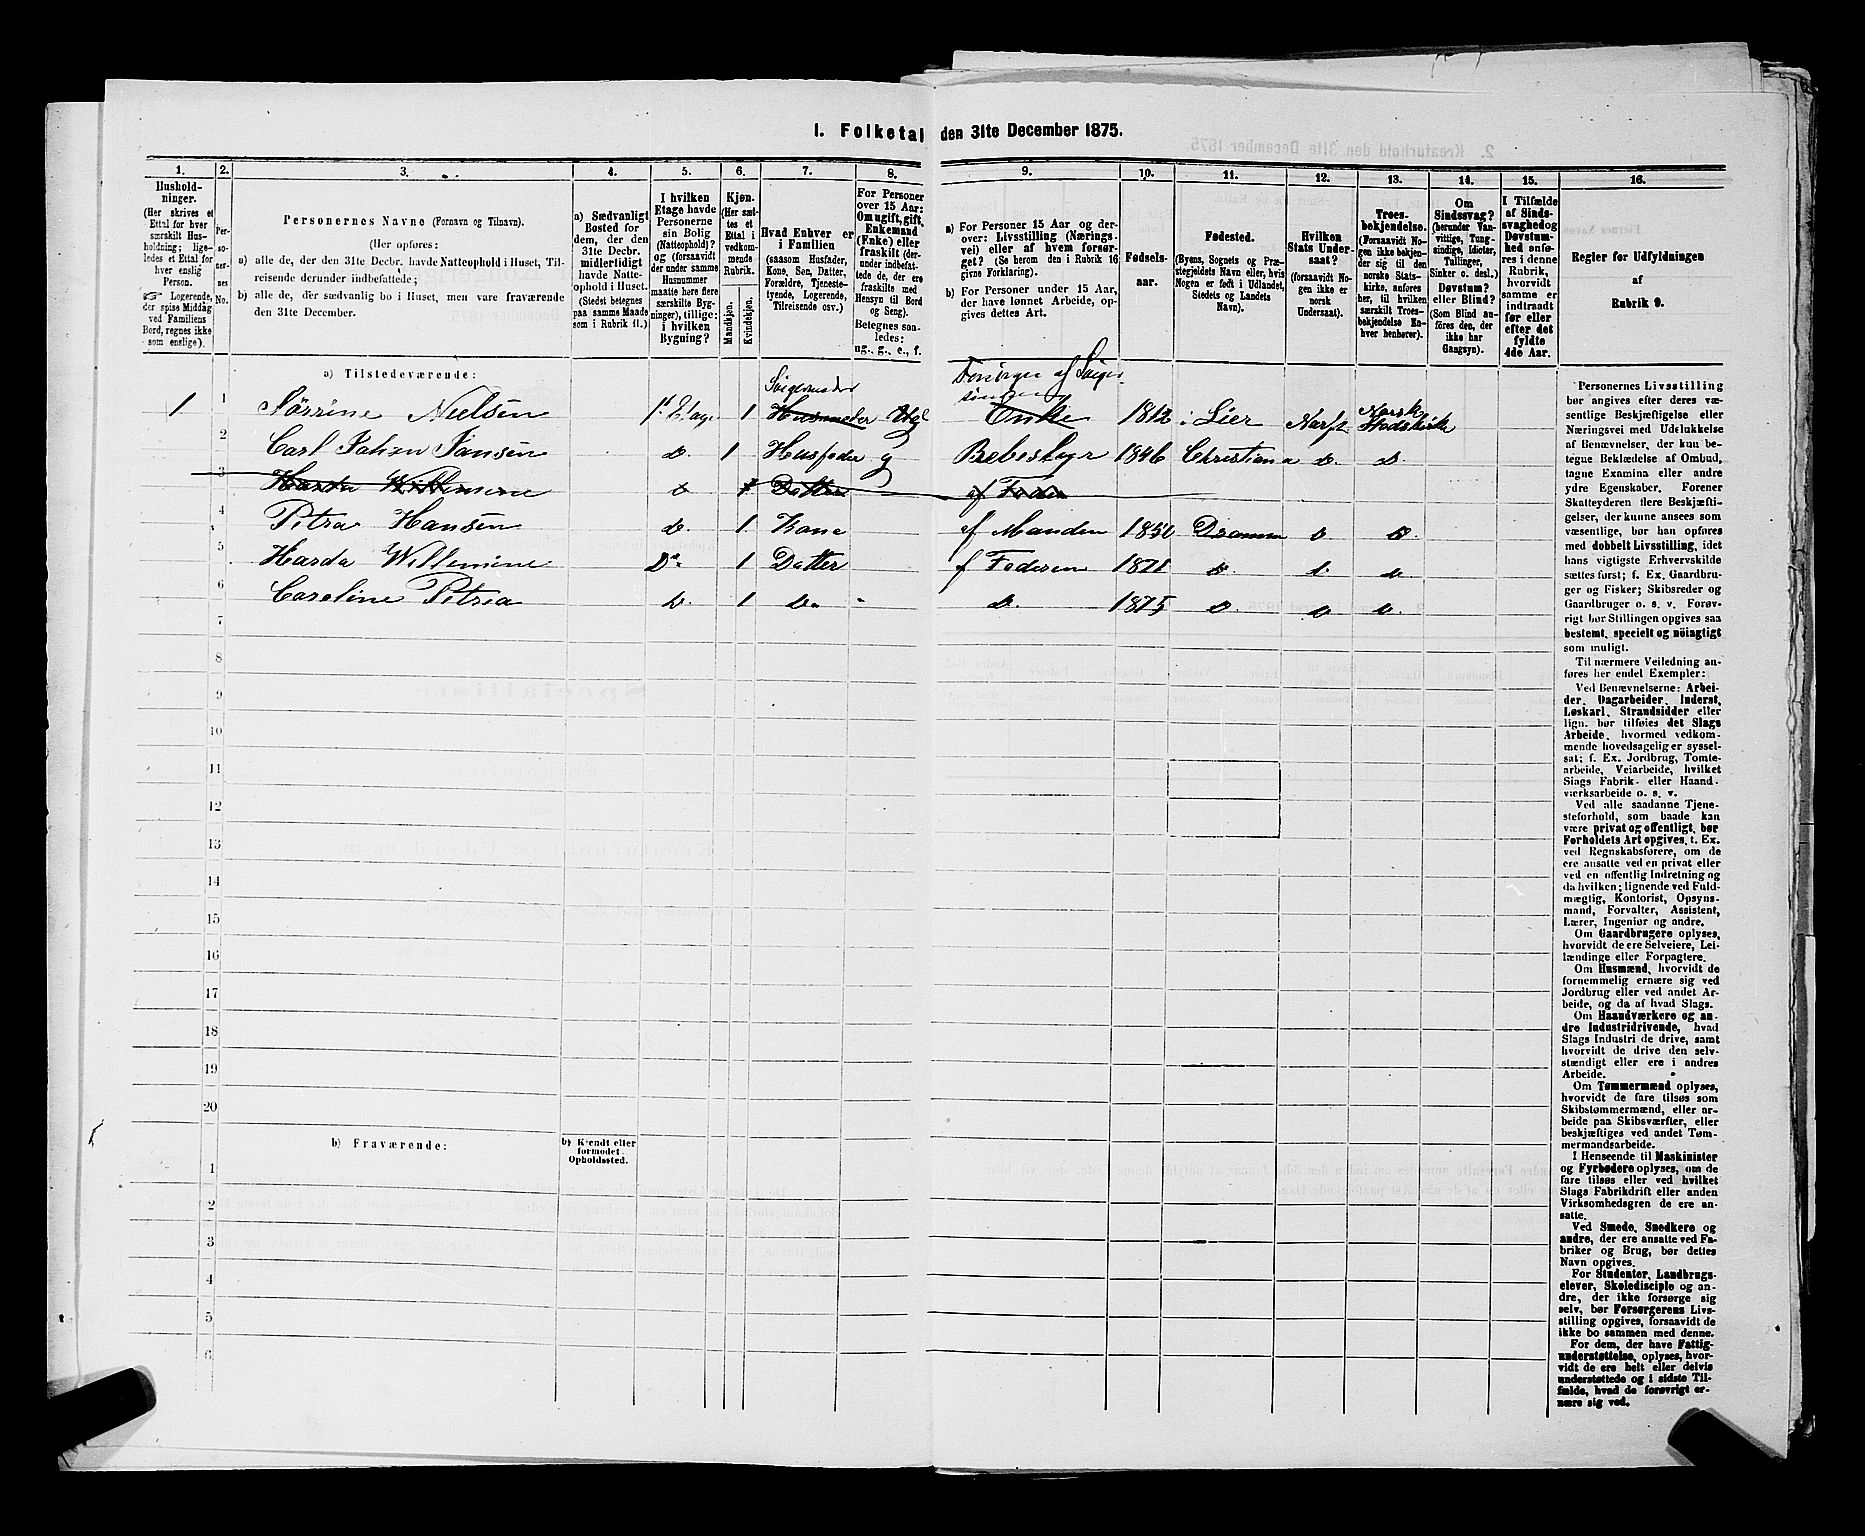 I. Folketal den 31te December 1875.
1. 2. 3. 4. 5. 6. 7. 8. 9. 10. 11. 12. 13. 14. 15. 16.
Husholdninger.
(Her skrives et
Ettal for hver
særskilt Husholdning;
ligeledes
et Ettal for
hver enslig
Person.
☞ Logerende,
der spise Middag
ved Familiens
Bord, regnes ikke
som enslige).
Personernes No.
Personernes Navne (Fornavn og Tilnavn).
(Her opføres:
a) alle de, der den 31te Decbr. havde Natteophold i Huset, Tilreisende
derunder indbefattede;
b) alle de, der sædvanlig bo i Huset, men vare fraværende
den 31te December.
a) Sædvanligt
Bosted for
dem, der den
31te Decbr.
midlertidigt
havde Natteophold
i Huset.
(Stedet betegnes
paa samme Maade
som i Rubrik 11.)
I hvilken
Etage havde
Personerne
sin Bolig
(Natteophold)?
og (forsaavidt
der under samme
Husnummer
maatte høre flere
særskilte Bygninger),
tillige:
i hvilken
Bygning?
Kjøn.
(Her sættes
et
Ettal i
vedkommende
Rubrik.
Mandkjøn.
Kvindekjøn.
Hvad Enhver er
i Familien
(saasom Husfader,
Kone, Søn, Datter,
Forældre, Tjenestetyende,
Logerende,
Tilreisende osv.)
For Personer
over 15 Aar:
Om ugift, gift,
Enkemand
(Enke) eller
fraskilt (derunder
indbefattede
de, der ere
fraskilte med
Hensyn til Bord
og Seng).
Betegnes saaledes:
ug., g., e., f.
a) For Personer 15 Aar og derover:
Livsstilling (Næringsvei)
eller af hvem forsørget?
(Se herom den i Rubrik 16
givne Forklaring).
b) For Personer under 15 Aar,
der have lønnet Arbeide, opgives
dettes Art.
Fødselsaar.
Fødested.
(Byens, Sognets og Præstegjeldets
Navn eller, hvis
Nogen er født i Udlandet,
Stedets og Landets
Navn).
Hvilken
Stats Undersaat?
(forsaavidt Nogen
ikke er
norsk
Undersaat).
Troesbekjendelse.
(Forsaavidt Nogen
ikke bekjender
sig til den
norske Statskirke,
anføres
her, til hvilken
særskilt Troesbekjendelse
Enhver
henhører).
Om
Sindssvag?
(herunder Vanvittige,
Tungsindige,
Idioter,
Tullinger,
Sinker o. desl.)
Døvstum?
eller Blind?
(Som Blind anføres
den, der
ikke har
Gangsyn).
I Tilfælde
af Sindssvaghed
og
Døvstumhed
anføres
i denne
Rubrik,
hvorvidt
samme er
indtraadt
før eller
efter det
fyldte
4de Aar.
Regler for Udfyldningen
af
Rubrik 9.
a) Tilstedeværende:
Svigermoder Forsörges af Sviger
sönnen
1 1 Sörrine Nielsen 1. Etage 1 Husmoder Enke 1812 i Lier Norsk Norsk Stadskirke
2 Carl Johan Jansen D. 1 Husfader g 1846 Christiania D. D.
3 Harda Willemine D Datter af Fader
4 Petra Hansen D. 1 Kone af Manden 1850 Drammen D D
5 Harda Willemine Do 1 Datter af Faderen 1871 D D. D
6 Caroline Petrea D. 1 Do D. 1875 D D D.
7
8
9
10
11
12
13
14
15
16
17
18
19
20
b) Fraværende:
b) Kjendt eller
formodet
Opholdssted.
1
2
3
4
5
6
Personernes Livsstilling
bør angives efter deres væsentlige
Beskjæftigelse eller
Næringsvei med Udelukkelse
af Benævnelser, der kun betegne
Beklædelse af Ombud,
tagne Examina eller andre
ydre Egenskaber. Forener
Skatteyderen flere Beskjæftigelser,
der kunne ansees som
væsentlige, bør han opføres
med dobbelt Livsstilling, idet
hans vigtigste Erhvervskilde
sættes først; f. Ex. Gaardbruger
og Fisker; Skibsreder og
Gaardbruger o. s. v. Forøvrigt
bør Stillingen opgives saa
bestemt, specielt og nöiagtigt
som muligt.
Til nærmere Veiledning anføres
her endel Exempler:
Ved Benævnelserne: Arbeider,
Dagarbeider, Inderst,
Løskarl, Strandsidder eller
lign. bør tilføies det Slags
Arbeide, hvormed vedkommende
hovedsagelig er sysselsat;
f. Ex. Jordbrug, Tomtearbeide,
Veiarbeide, hvilket
Slags Fabrik- eller Haandværksarbeide
o. s. v.
Ved alle saadanne Tjenesteforhold,
som baade kan
være privat og offentligt, bør
Forholdets Art opgives, t. Ex.
ved Regnskabsførere, om de
ere ansatte ved en privat eller
ved en offentlig Indretning og
da hvilken; lignende ved Fuldmægtig,
Kontorist, Opsynsmand,
Forvalter, Assistent,
Lærer, Ingeniør og andre.
Om Gaardbrugere oplyses,
hvorvidt de ere Selveiere, Leilændinge
eller Forpagtere.
Om Husmænd, hvorvidt de
fornemmelig ernære sig ved
Jordbrug eller ved andet Arbeide,
og da af hvad Slags.
Om Haandværkere og andre
Industridrivende, hvad
Slags Industri de drive, samt
hvorvidt de drive den selvstændigt
eller ere i andres
Arbeide.
Om Tømmermænd oplyses,
hvorvidt de fare tilsøs som
Skibstømmermænd, eller arbeide
paa Skibsværfter, eller
beskjæftiges ved andet Tømmermandsarbeide.
I Henseende til Maskinister
og Fyrbødere oplyses, om de
fare tilsøs eller ved hvilket
Slags Fabrikdrift eller anden
Virksomhedsgren de ere ansatte.
Ved Smede, Snedkere og
andre, der ere ansatte ved Fabriker
og Brug, bør dettes
Navn opgives.
For Studenter, Landbrugselever,
Skoledisciple og andre,
der ikke forsørge sig
selv, bør Forsørgerens Livsstilling
opgives, forsaavidt de
ikke bo sammen med denne.
For dem, der have Fattigunderstøttelse,
oplyses, hvorvidt
de ere helt eller delvis
understøttede og i sidste Tilfælde,
hvad de forøvrigt ernære
sig ved.